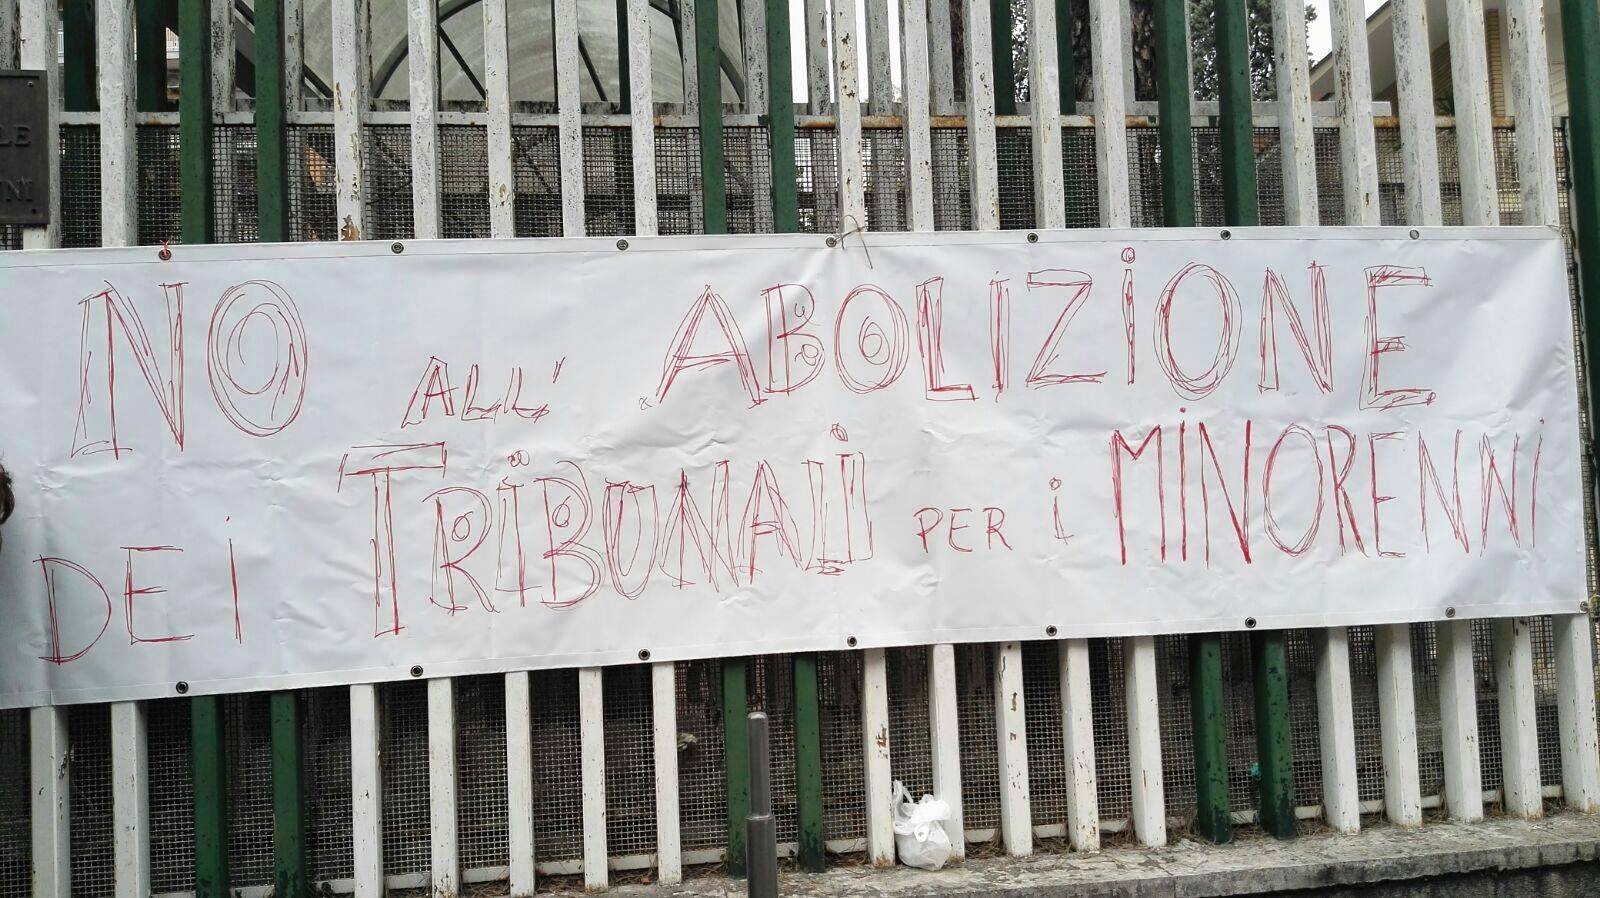 LE
NNI
NO ALL' ABOLIZIONE
DEI TRIBUNALI PER i MINORENNI